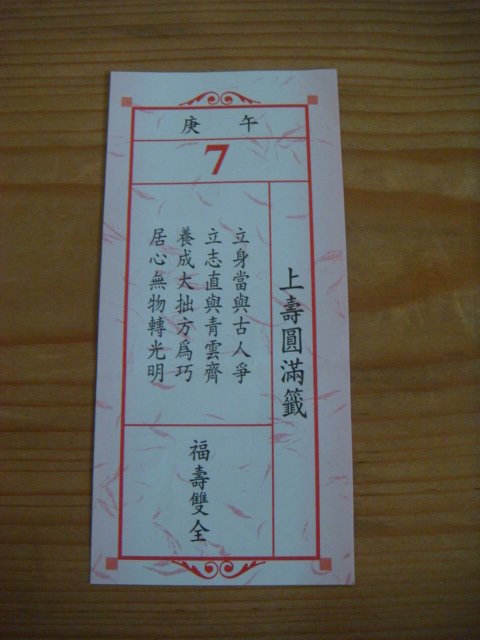 庚午
7
上壽圓滿籤
立身當與古人爭
立志直與青雲齊
養成大拙方為巧
居心無物轉光明
福壽雙全